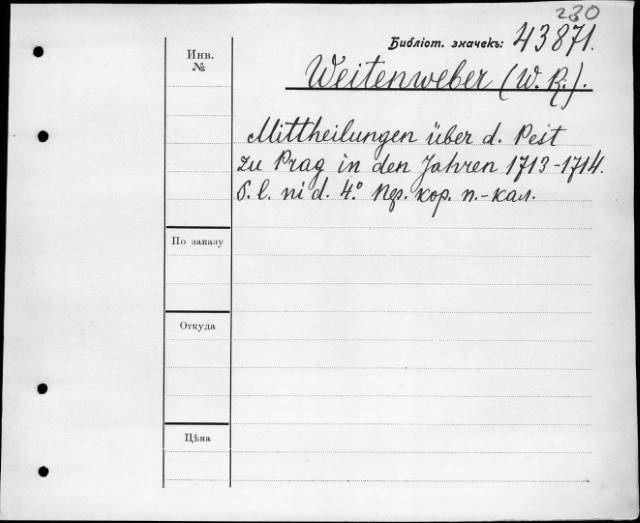 230
Библіот. значекъ: 43871.
Инв.
№
Weitenweber (W. R.).
Mittheilungen über d. Pest
zu Prag in den Jahren 1713-1714.
S. l. ni d. 4.º кор. п.-кал.
По заказу
Откуда
Цѣна